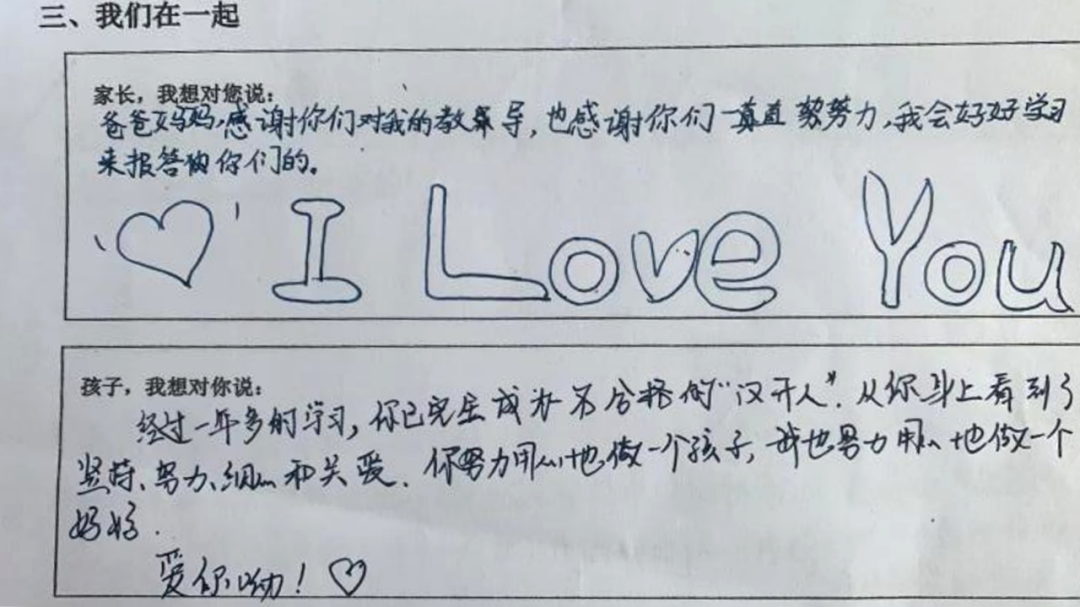 三、我们在一起
家长，我想对您说：
爸爸妈妈，感谢你们对我的教导，也感谢你们一直努力，我会好好学习
来报答你们的。
I Love You
孩子，我想对你说：
经过一年多的学习，你已完全成为合格的“汉开人”。从你身上看到了
坚持、努力、细心和关爱。你努力用心地做一个孩子，我也努力用心地做一个
妈妈。
爱你呦！